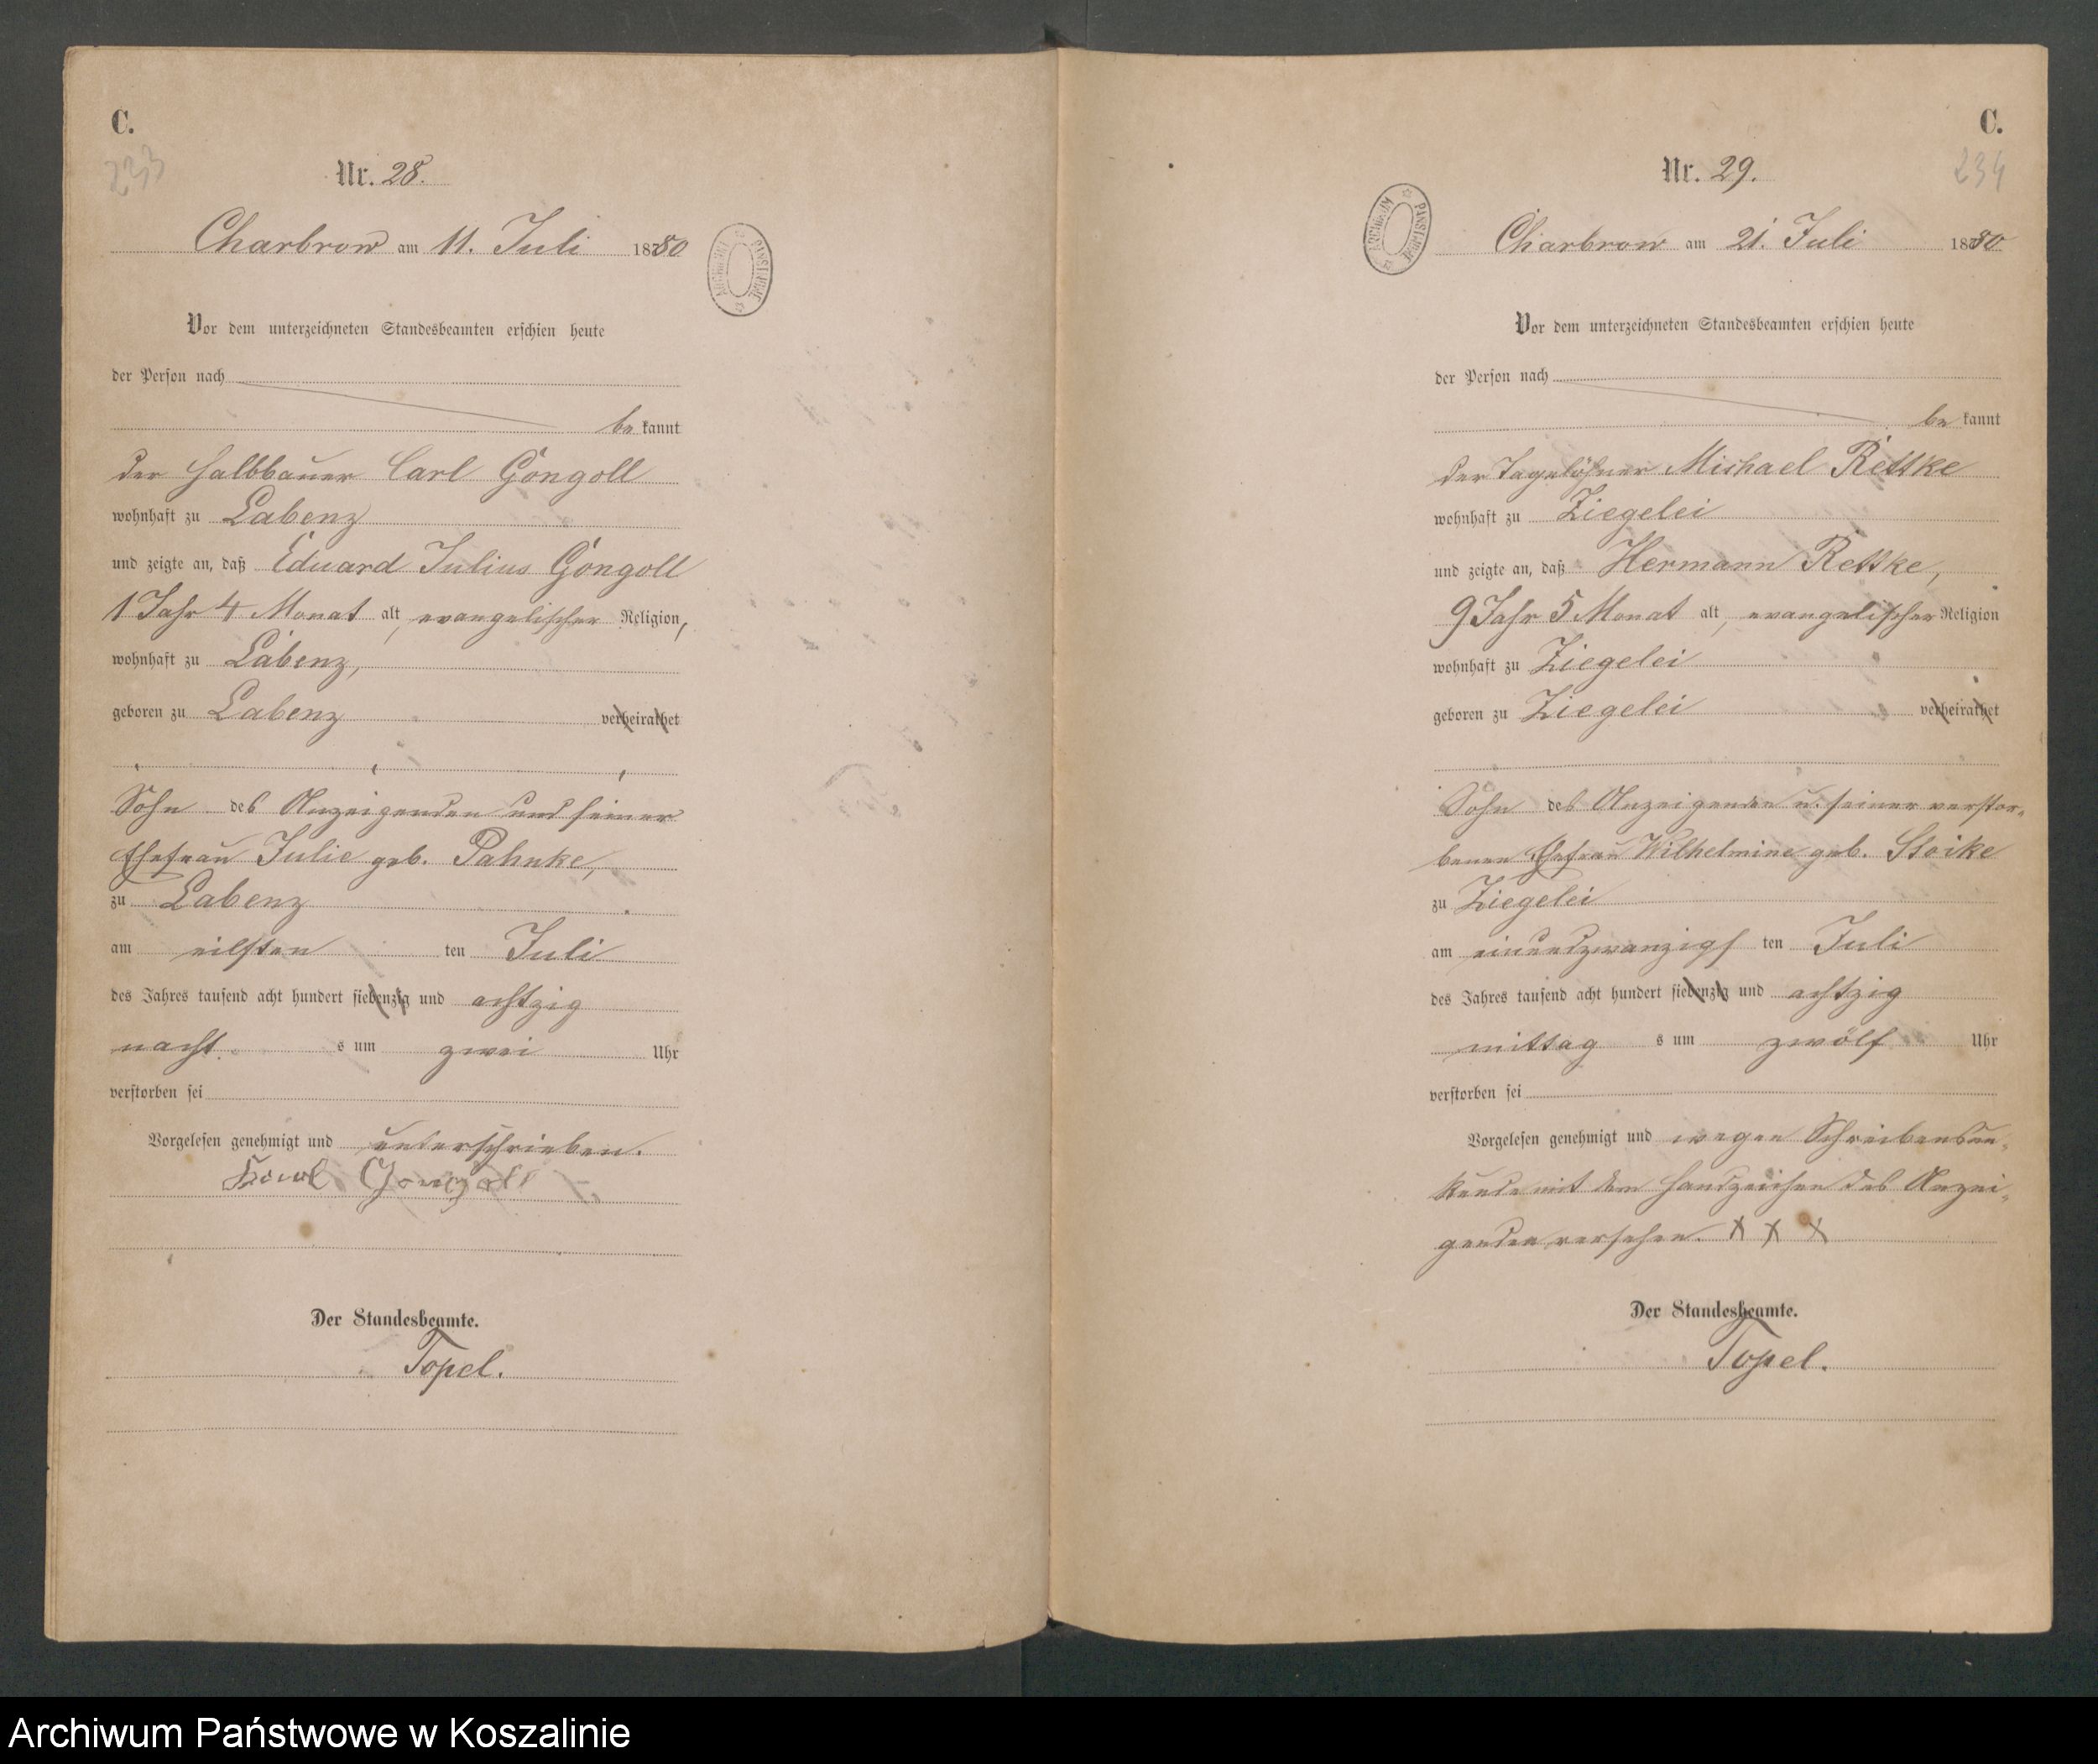 C.
233
Nr. 28.
Charbrow am 11. Juli 1880
ARCHIWUM PAŃSTWOWE
Vor dem unterzeichneten Standesbeamten erschien heute
der Person nach
be kannt
der Halbbauer Carl Gongoll
wohnhaft zu Labenz
und zeigte an, daß Eduard Julius Gongoll
1 Jahr 4 Monat alt, evangelischer Religion,
wohnhaft zu Labenz,
geboren zu Labenz verheirathet
Sohn des Anzeigenden und seiner
Ehefrau Julie geb. Pahnke,
zu Labenz
am eilften ten Juli
des Jahres tausend acht hundert siebenzig und achtzig
nacht s um zwei Uhr
verstorben sei
Vorgelesen genehmigt und unterschrieben.
Karl Gongoll
Der Standesbeamte.
Topel.
C.
234
Nr. 29.
Charbrow am 21. Juli 1880
ARCHIWUM PAŃSTWOWE
Vor dem unterzeichneten Standesbeamten erschien heute
der Person nach
be kannt
der Tagelöhner Michael Rettke
wohnhaft zu Ziegelei
und zeigte an, daß Hermann Rettke,
9 Jahr 5 Monat alt, evangelischer Religion
wohnhaft zu Ziegelei
geboren zu Ziegelei verheirathet
Sohn des Anzeigenden u. seiner verstor-
benen Ehefrau Wilhelmine geb. Stoike
zu Ziegelei
am einundzwanzigs ten Juli
des Jahres tausend acht hundert siebenzig und achtzig
mittag s um zwölf Uhr
verstorben sei
Vorgelesen genehmigt und wegen Schreibensun-
kunde mit dem Handzeichen des Anzei-
genden versehen. X X X
Der Standesbeamte.
Topel.
Archiwum Państwowe w Koszalinie